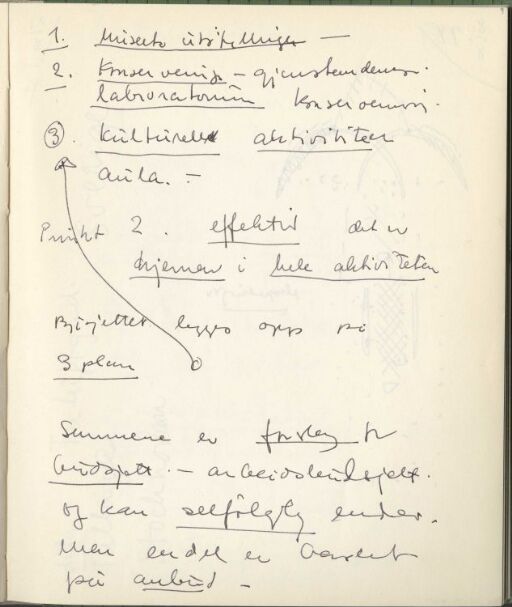 1. Museets utstillinger —
2. Konservering — gjenstandener.
laboratorium konservering.
3. kulturelle aktiviteter
aula. —
Punkt 2. effektiv det er
kjernen i hele aktiviteten
Budsjettet legges opp på
3 plan
Summene er forslag til
budsjett. — arbeidsbudsjett.
og kan selfølgelig endres.
Men en del er basert
på anbud —